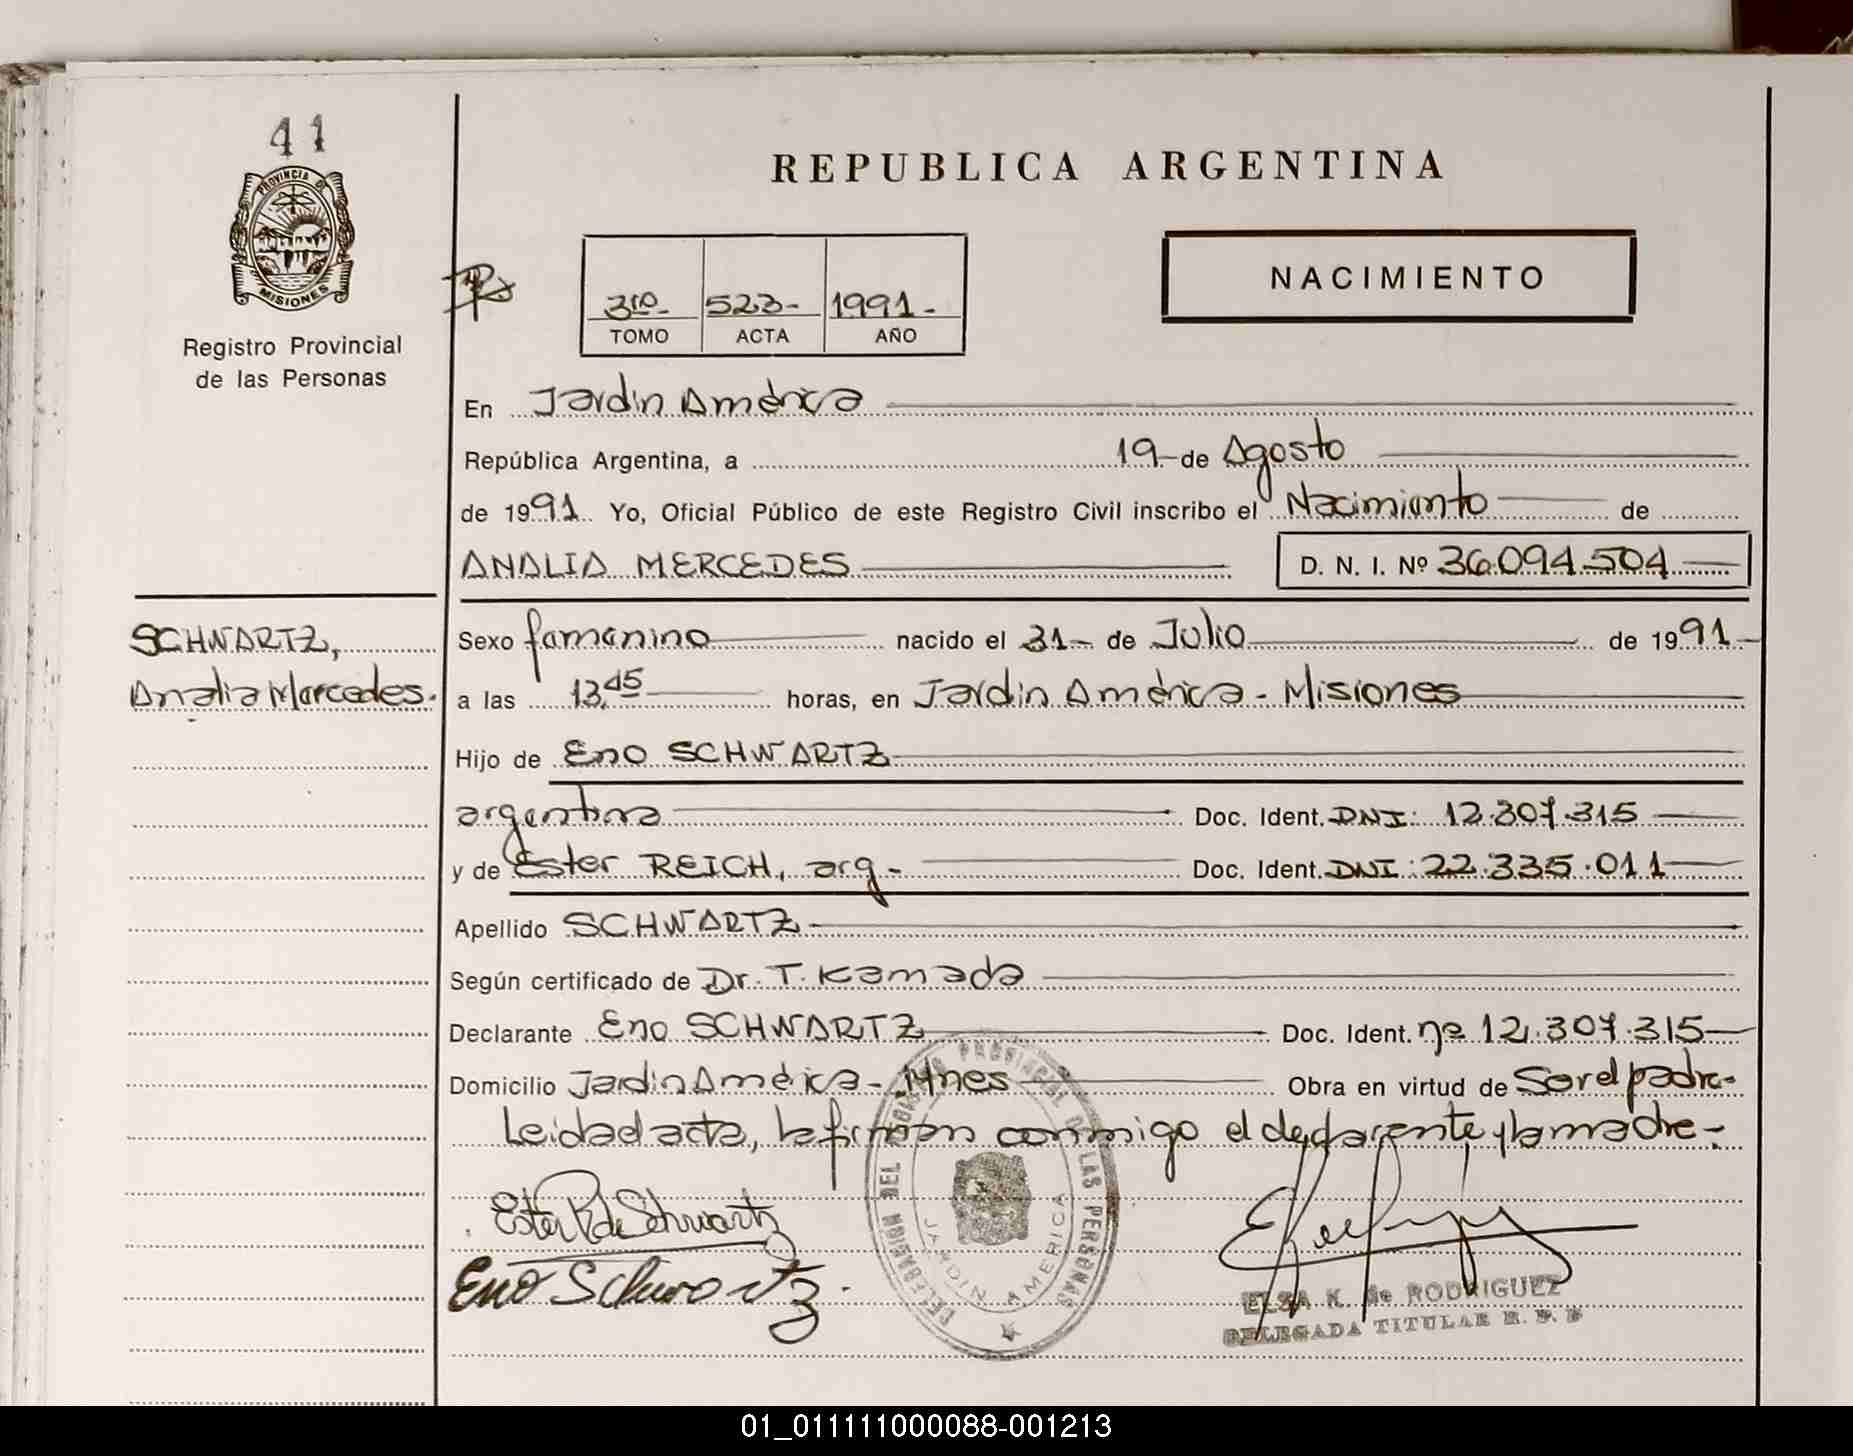 41
PROVINCIA DE
MISIONES
Registro Provincial
de las Personas
REPUBLICA ARGENTINA
NACIMIENTO
3ro- 523- 1991-
TOMO ACTA AÑO
En Jardin América
República Argentina, a 19- de Agosto
de 1991 Yo, Oficial Público de este Registro Civil inscribo el Nacimiento de
ANALIA MERCEDES D. N. I. Nº 36.094.504
SCHWARTZ,
Analia Mercedes.
Sexo femenino nacido el 31- de Julio de 1991-
a las 13,45 horas, en Jardin América - Misiones
Hijo de Eno SCHWARTZ
argentina Doc. Ident. DNI: 12.307.315
y de Ester REICH, arg- Doc. Ident. DNI: 22.335.011
Apellido SCHWARTZ
Según certificado de Dr. T. Kamada
Declarante Eno SCHWARTZ Doc. Ident. nº 12.307.315
Domicilio Jardin América - Mnes Obra en virtud de Ser el padre-
Leida el acta, la firman conmigo el declarante y la madre-
Ester R de Schwartz
Eno Schwartz.
DELEGACION DEL REGISTRO PROVINCIAL DE LAS PERSONAS
JARDIN AMERICA
ELSA K. de RODRIGUEZ
DELEGADA TITULAR R. P. P
01_011111000088-001213